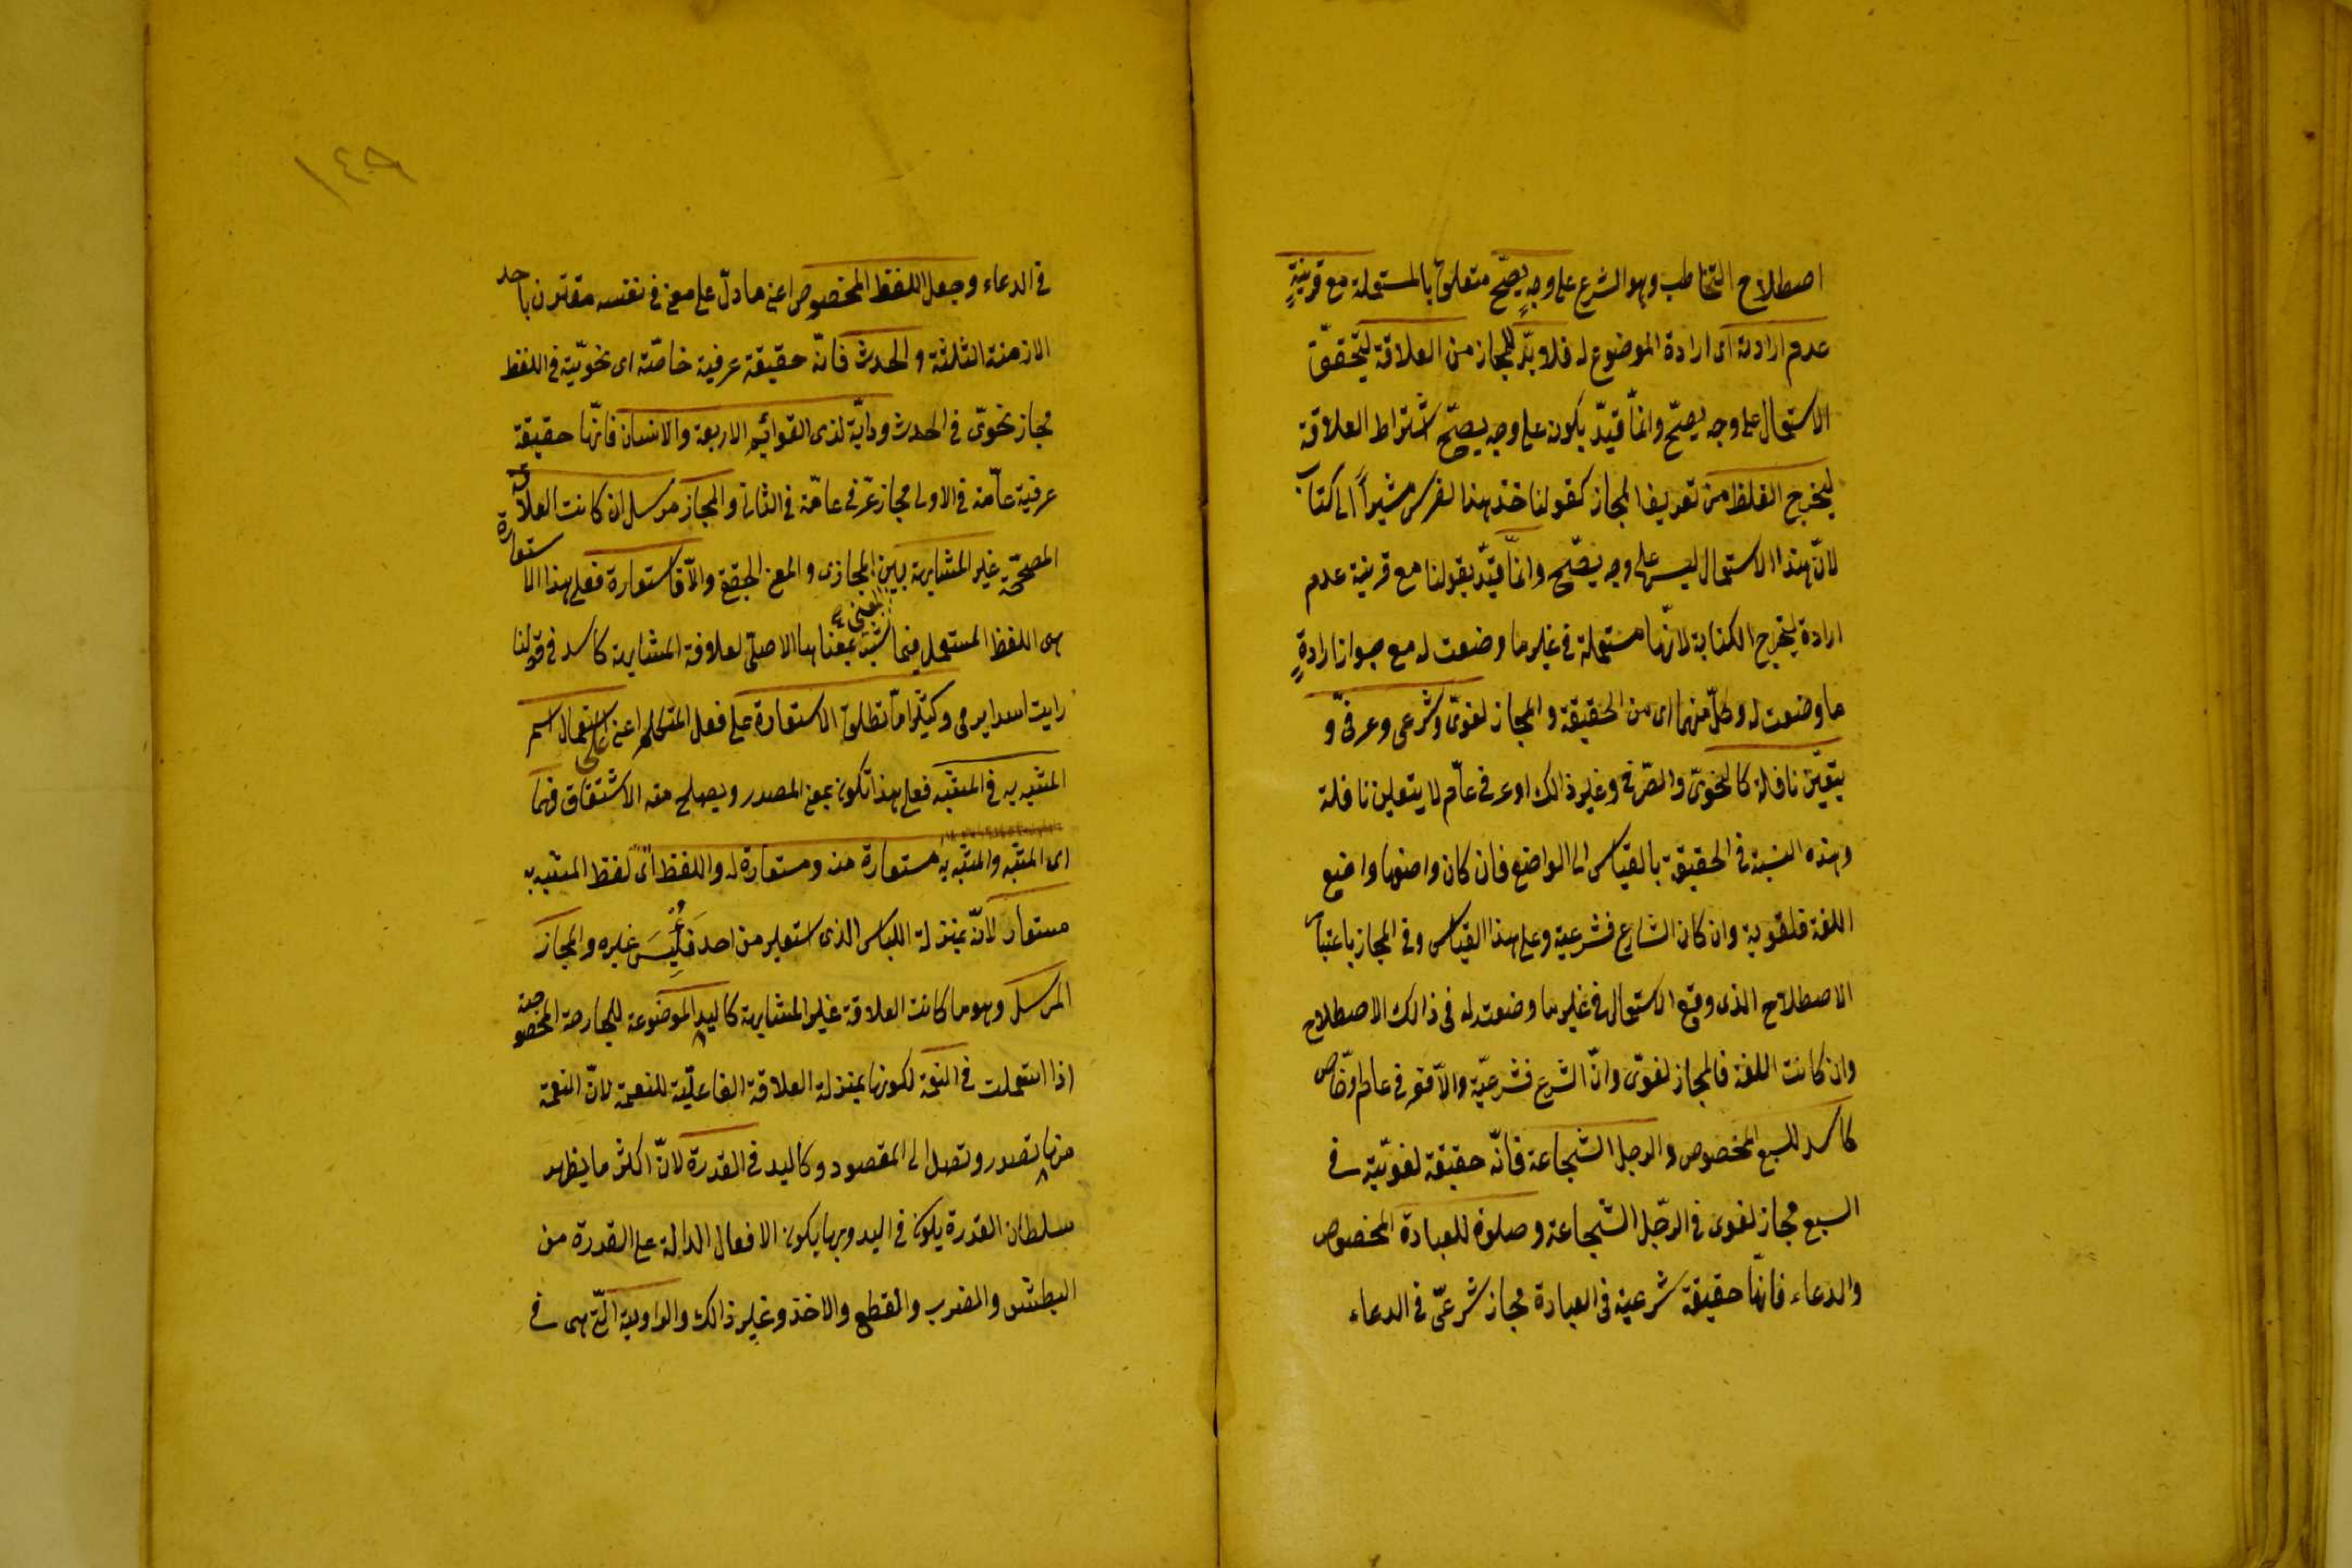 اصطلاح التخاطب وهو الشرع على وجهٍ يصحّ متعلق بالمستعملة مع قرينةٍ
عدم ارادته اى ارادة الموضوع له فلا بدّ للمجاز من العلاقة ليتحقق
الاستعمال على وجه يصحّ وانمّا قيّد بكون على وجه يصحّ اشتراط العلاقة
ليخرج الغلط من تعريف المجاز كقولنا خذ هذا الفرس مشيراً الى كتاب
لانّ هذا الاستعمال ليس على وجه يصّح وانمّا قيّد بقولنا مع قرينة عدم
ارادة ليخرج الكناية لانّها مستعملة فى غير ما وضعت له مع جواز ارادةٍ
ما وضعت له وكلّ منهما اى من الحقيقة والمجاز لغوىّ وشرعى وعرفىّ و
يتعيّن ناقله كالنحوىّ والصّرفى وغير ذالك او عرفى عامّ لا يتعين ناقله
وهذه النسبة فى الحقيقة بالقياس الى الواضع فان كان واضعها واضع
اللغة فلغوية وان كان الشارع فشرعية وعلى هذا القياس وفى المجاز باعتبار
الاصطلاح الذى وقع الاستعمال فى غير ما وضعت له فى ذالك الاصطلاح
وان كانت اللغة فالمجاز لغوىّ وانّ الشرع فشرعيّة والّا فعرفى عام او خاص
كاسد للسبع المخصوص والرجل الشجاعة فانّه حقيقة لغويّة فى
السبع مجاز لغوى فى الرّجل الشجاعة وصلوة للعبادة المخصوص
والدعاء فانّها حقيقة شرعية فى العبادة مجاز شرعىّ فى الدعاء
١٤٩
فى الدعاء وجعل اللفظ المخصوص اعنى ما دلّ على معنى فى نفسه مقترن باحد
الازمنة الثلثة والحدث فانّه حقيقة عرفية خاصّة اى نحويّة فى اللفظ
مجاز نحوىّ فى الحدث ودابّة لذى القوائم الاربعة والانسان فانّها حقيقة
عرفية عامّة فى الاولى مجاز عرفى عامّة فى الثانى والمجاز مرسل ان كانت العلاقة
المصحّحة غير المشابهة بين المجازى والمعنى الحقيقى والّا فاستعارة فعلى هذا الاستعارة
هى اللفظ المستعمل فيما شبّه بمعناها الاصلىّ لعلاقة المشابهة كاسد فى قولنا
رايت اسدا يرمى وكثيرا ما تطلق الاستعارة على فعل المتكلم اعنى على استعمال اسم
المشبه به فى المشبّه فعلى هذا تكون بمعنى المصدر ويصلح منه الاشتقاق فهما
اى المشبّه والمشبّه به مستعارة منه ومستعارة له واللفظ اى لفظ المشبه به
مستعار لانّه بمنزلة اللباس الذى استعير من احد فلُبِسَ غيره والمجاز
المرسل وهو ما كانت العلاقة غير المشابهة كاليد الموضوعة للجارحة المخصوصة
اذا استعملت فى النعمة لكونها بمنزلة العلاقة الفاعليّة للنعمة لانّ النعمة
منها تصدر وتصل الى المقصود وكاليد فى القدرة لانّ اكثر ما يظهر
سلطان القدرة يكون فى اليد وبها يكون الافعال الدالة على القدرة من
البطش والضرب والقطع والاخذ وغير ذالك والراوية الّتى هى فى